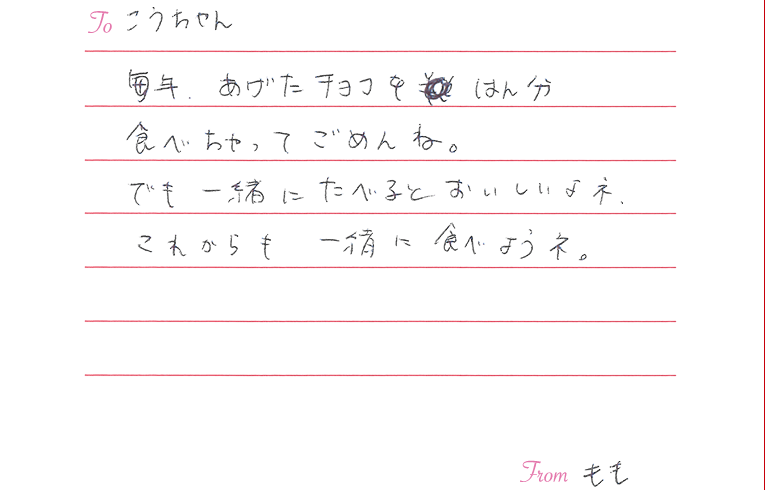 To こうちゃん
毎年、あげたチョコを はん分
食べちゃってごめんね。
でも 一緒に たべると おいしいよネ、
これからも 一緒に 食べようネ。
From もも